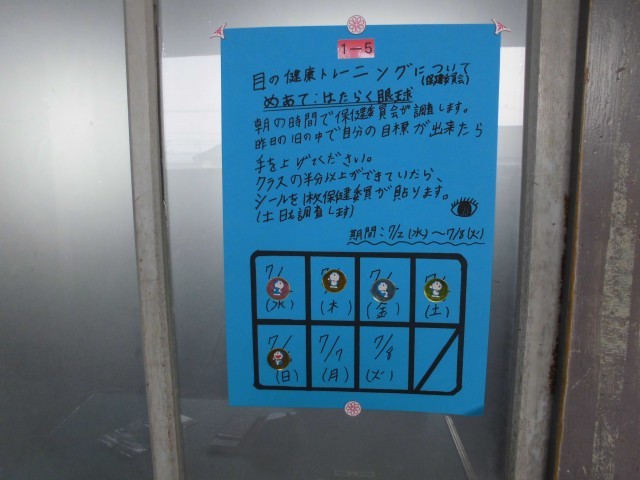 1-5
目の健康トレーニングについて
(保健委員会)
めあて:はたらく眼球
朝の時間で保健委員会が調査します。
昨日の1日の中で自分の目標が出来たら
手を上げてください。
クラスの半分以上ができていたら、
シールを1枚保健委員が貼ります。
(土日も調査します)
期間:7/2(水)〜7/8(火)
7/ 7/ 7/
(水) (木) (金) (土)
7/ 7/7 7/8
(日) (月) (火)